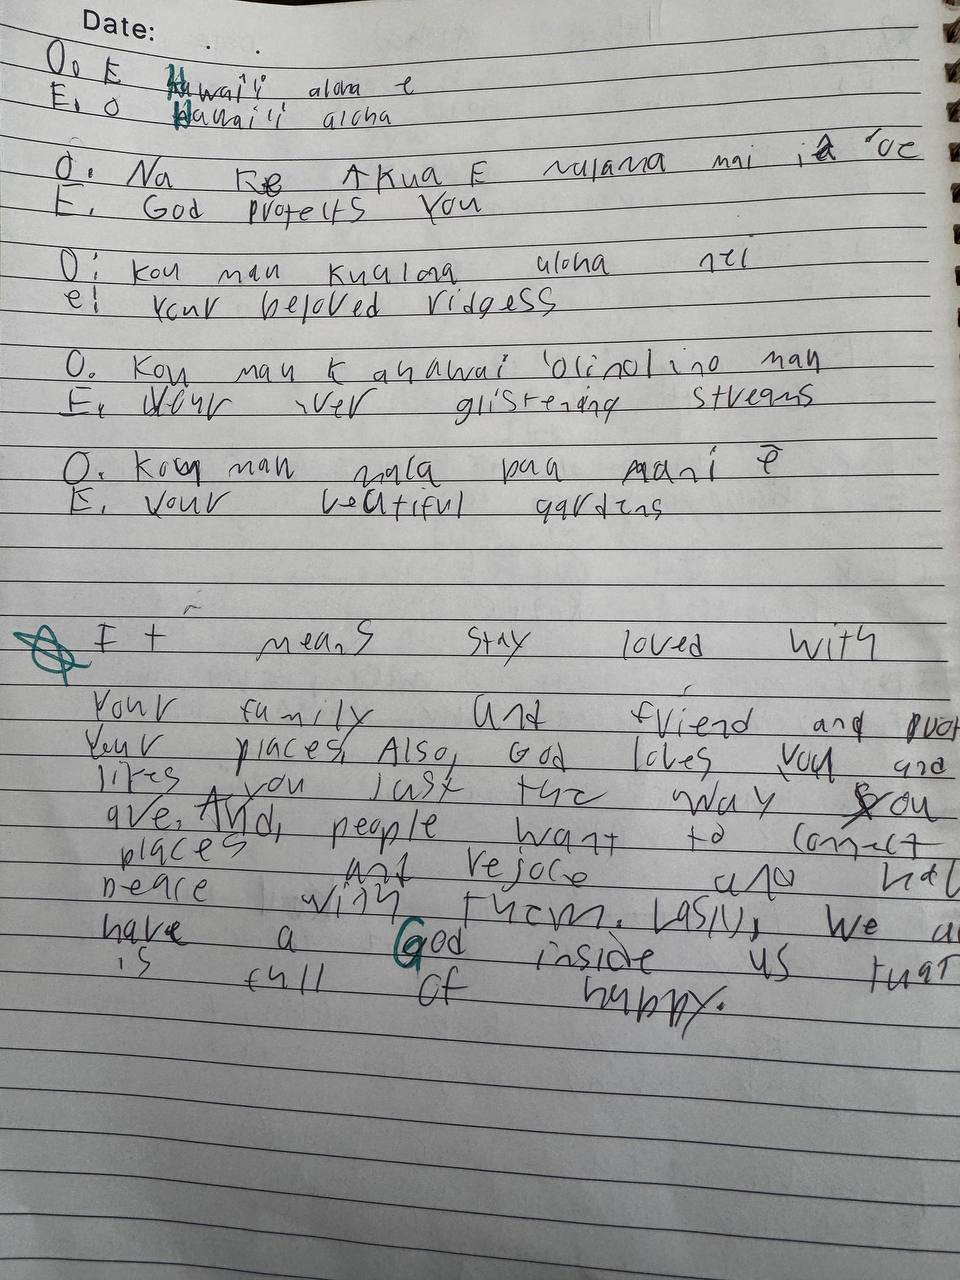 Date:
O. E Hawai'i aloha e
E. O Hawai'i aloha
O. Na Ke AKua E malama mai iā 'oe
E. God protects you
O: kou mau kualona aloha nei
e! your beloved ridgess
O. Kou mau K ahawai 'olinolino mau
E. Your iver glistening streams
O. kou mau mala pua nani ē
E. your beatiful gardens
It means stay loved with
your family and friend and
your places, Also, God loves you and
likes you just the way you
are, And, people want to connect
places and rejoce and
peace with them. Lasly, we
have a God inside us that
is full of happy.